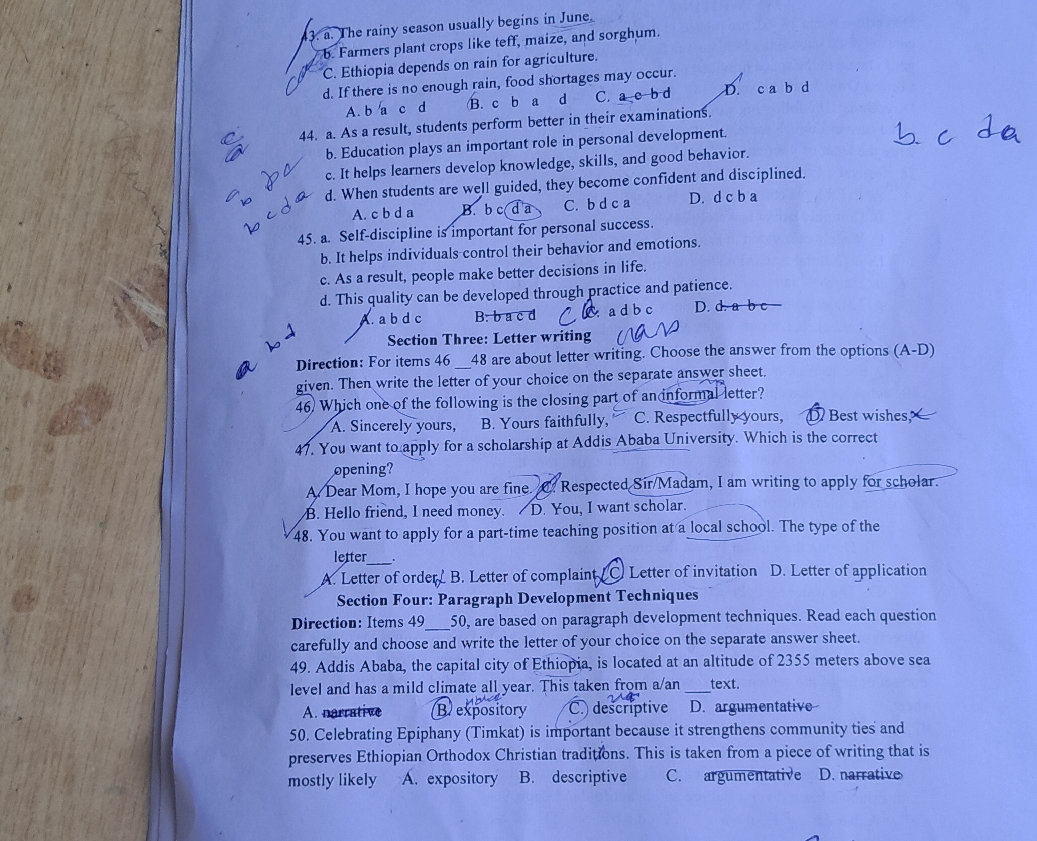 43. a. The rainy season usually begins in June.
b. Farmers plant crops like teff, maize, and sorghum.
C. Ethiopia depends on rain for agriculture.
d. If there is no enough rain, food shortages may occur.
A. b a c d B. c b a d C. a c b d D. c a b d
44. a. As a result, students perform better in their examinations.
b. Education plays an important role in personal development.
b c d a
c. It helps learners develop knowledge, skills, and good behavior.
d. When students are well guided, they become confident and disciplined.
b c d a
A. c b d a B. b c d a C. b d c a D. d c b a
45. a. Self-discipline is important for personal success.
b. It helps individuals control their behavior and emotions.
c. As a result, people make better decisions in life.
d. This quality can be developed through practice and patience.
A. a b d c B. b a c d C. a d b c D. d a b c
a b d
Section Three: Letter writing
Direction: For items 46 __48 are about letter writing. Choose the answer from the options (A-D)
given. Then write the letter of your choice on the separate answer sheet.
46. Which one of the following is the closing part of an informal letter?
A. Sincerely yours, B. Yours faithfully, C. Respectfully yours, D. Best wishes,
47. You want to apply for a scholarship at Addis Ababa University. Which is the correct
opening?
A. Dear Mom, I hope you are fine. C. Respected Sir/Madam, I am writing to apply for scholar.
B. Hello friend, I need money. D. You, I want scholar.
48. You want to apply for a part-time teaching position at a local school. The type of the
letter____.
A. Letter of order B. Letter of complaint C. Letter of invitation D. Letter of application
Section Four: Paragraph Development Techniques
Direction: Items 49___50, are based on paragraph development techniques. Read each question
carefully and choose and write the letter of your choice on the separate answer sheet.
49. Addis Ababa, the capital city of Ethiopia, is located at an altitude of 2355 meters above sea
level and has a mild climate all year. This taken from a/an ____text.
A. narrative B. expository C. descriptive D. argumentative
50. Celebrating Epiphany (Timkat) is important because it strengthens community ties and
preserves Ethiopian Orthodox Christian traditions. This is taken from a piece of writing that is
mostly likely A. expository B. descriptive C. argumentative D. narrative